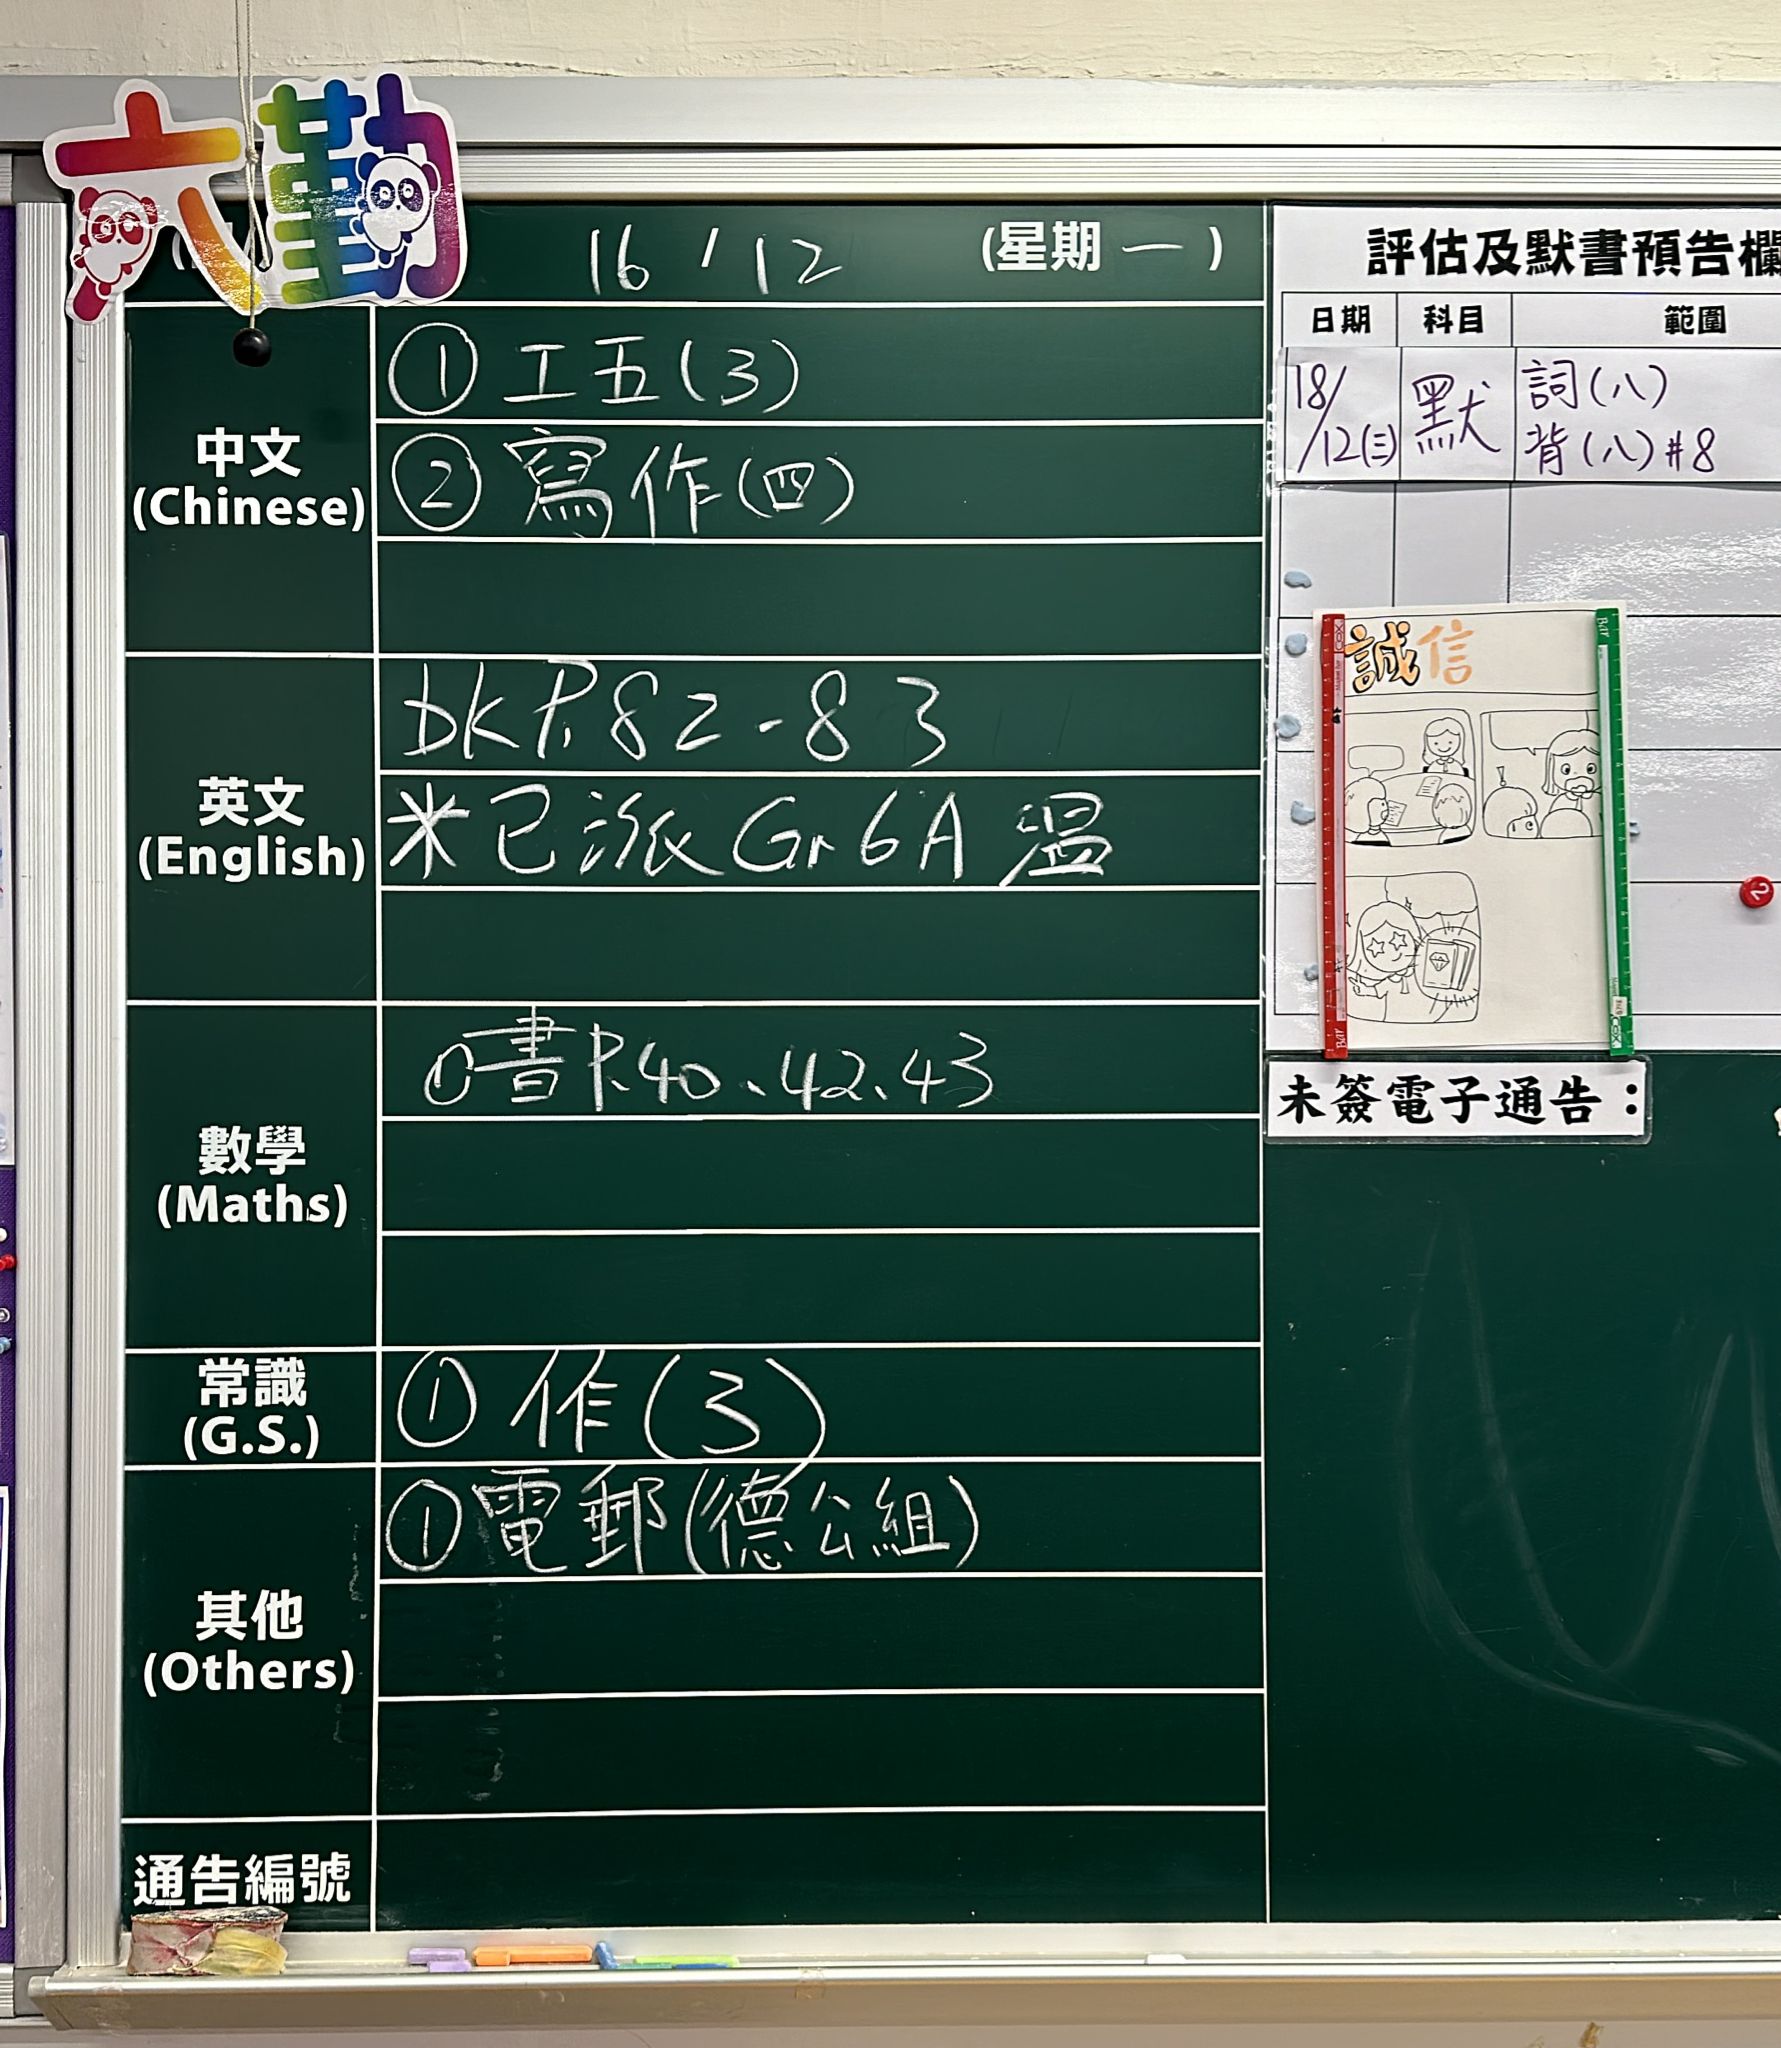 六勤
16 / 12 (星期 一 )
中文
(Chinese)
① 工五(3)
② 寫作(四)
英文
(English)
bk P.82-83
米已派 Gr 6A 溫
數學
(Maths)
①書P.40、42、43
常識
(G.S.)
① 作(3)
其他
(Others)
①電郵(德公組)
通告編號
評估及默書預告欄
日期 科目 範圍
18/12(三) 默 詞(八)
背(八)#8
誠信
未簽電子通告：
2